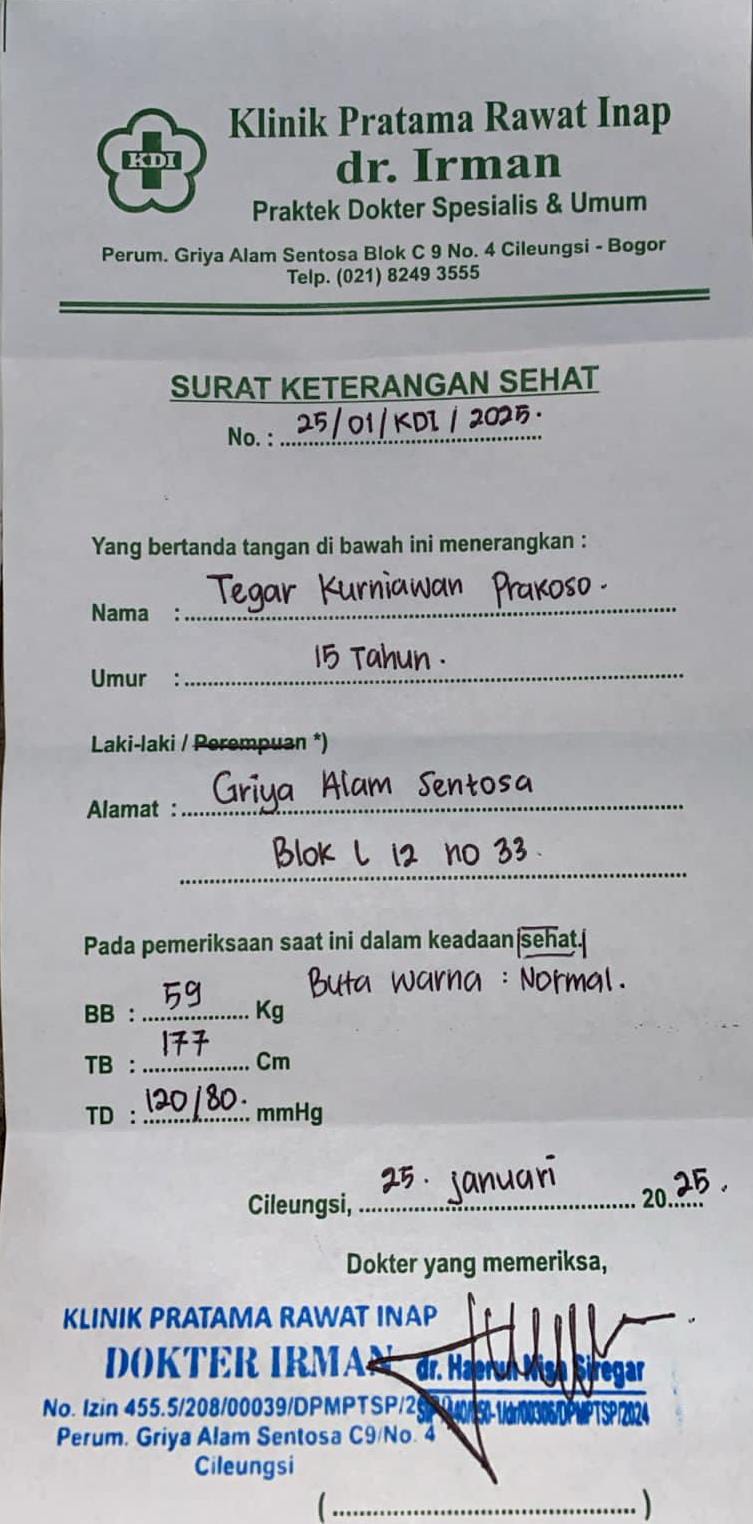 KDI
Klinik Pratama Rawat Inap
dr. Irman
Praktek Dokter Spesialis & Umum
Perum. Griya Alam Sentosa Blok C 9 No. 4 Cileungsi - Bogor
Telp. (021) 8249 3555
SURAT KETERANGAN SEHAT
No. : 25/01/KDI/2025.
Yang bertanda tangan di bawah ini menerangkan :
Nama : Tegar Kurniawan Prakoso.
Umur : 15 Tahun.
Laki-laki / Perempuan *)
Alamat : Griya Alam Sentosa
Blok L 12 no 33.
Pada pemeriksaan saat ini dalam keadaan sehat.
Buta warna : Normal.
BB : 59 Kg
TB : 177 Cm
TD : 120/80. mmHg
Cileungsi, 25. januari 2025.
Dokter yang memeriksa,
KLINIK PRATAMA RAWAT INAP
DOKTER IRMAN
dr. Siregar
No. Izin 455.5/208/00039/DPMPTSP/
Perum. Griya Alam Sentosa C9/No. 4
Cileungsi
(.....................................)